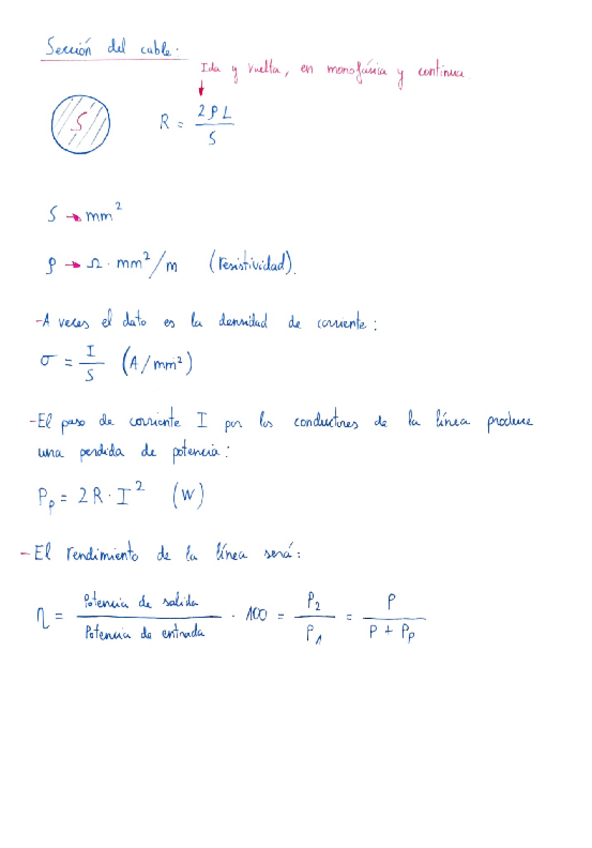 Sección del cable.
Ida y vuelta, en monofásica y continua.
S
R = 2 ρ L / S
S → mm²
ρ → Ω · mm²/m (resistividad).
- A veces el dato es la densidad de corriente:
σ = I / S (A/mm²)
- El paso de corriente I por los conductores de la línea produce
una perdida de potencia:
Pp = 2 R · I² (W)
- El rendimiento de la línea será:
η = Potencia de salida / Potencia de entrada · 100 = P₂ / P₁ = P / P + Pp